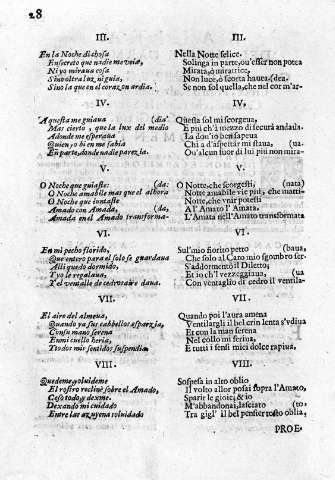 28
III.
En la Noche dichosa
En secreto que nadie me veìa,
Ni yo miraua cosa
Sin otra luz, ni guia,
Sino la que en el corazon ardia.
IV.
A questa me guiaua (dia
Mas cierto, que la lux del medio
Adonde me esperaua
Quien yo bien me sabia
En parte, donde nadie parezia.
V.
O Noche que guiaste: (da:
O Noche amabile mas que el albora
O Noche que iuntaste
Amado con Amada, (da,
Amada en el Amado transforma-
VI.
En mi pecho florido,
Que entero para el solo se guardaua
Alli quedò dormido,
Y yo le regalaua,
Y el ventalle de cedros aire daua.
VII.
El aire del almena,
Quando ya sus cabbellos asparzia,
Con su mano serena
En mi cuello heria,
Y todos mis sentidos suspendia.
VIII.
Quedeme, y oluideme
El rostro recline sobre el Amado,
Ceso todo y dexme.
Dexando mi cuidado
Entre las azuçenas oluidado
III.
Nella Notte felice.
Solinga in parte, ou'esser non potea
Mirata, ò miratrice,
Non luce, ò scorta hauea. (dea.
Se non sol quella, che nel cor m'ar-
IV.
Questa sol mi scorgeua,
E più ch'à mezzo dì secura andaua.
La doue io ben sapeua
Chi a d'aspettar mi staua, (ua
Ou'alcun fuor di lui più non mira-
V.
O Notte, che scorgesti, (nata)
Notte amabile vie più, che matti-
Notte, che vnir potesti
Al'Amato l'Amata.
L'Amata nell'Amato transformata
VI.
Sul'mio fiorito petto (baua,
Che solo al Caro mio sgombro ser-
S'addormentò il Diletto;
Et io ch'il vezzeggiaua, (ua
Con ventaglio di cedro il ventila-
VII.
Quando poi l'aura amena
Ventilargli il bel crin lenta s'vdiua
Et con la man serena
Nel collo mi feriua,
E tutti i sensi miei dolce rapiua.
VIII.
Sospesa in alto oblio
Il volto allor posai sopra l'Amato,
Sparir le gioie; & io
M'abbandonai, lasciato (to,
Tra gigl' il bel pensier tosto oblia,
PROE-